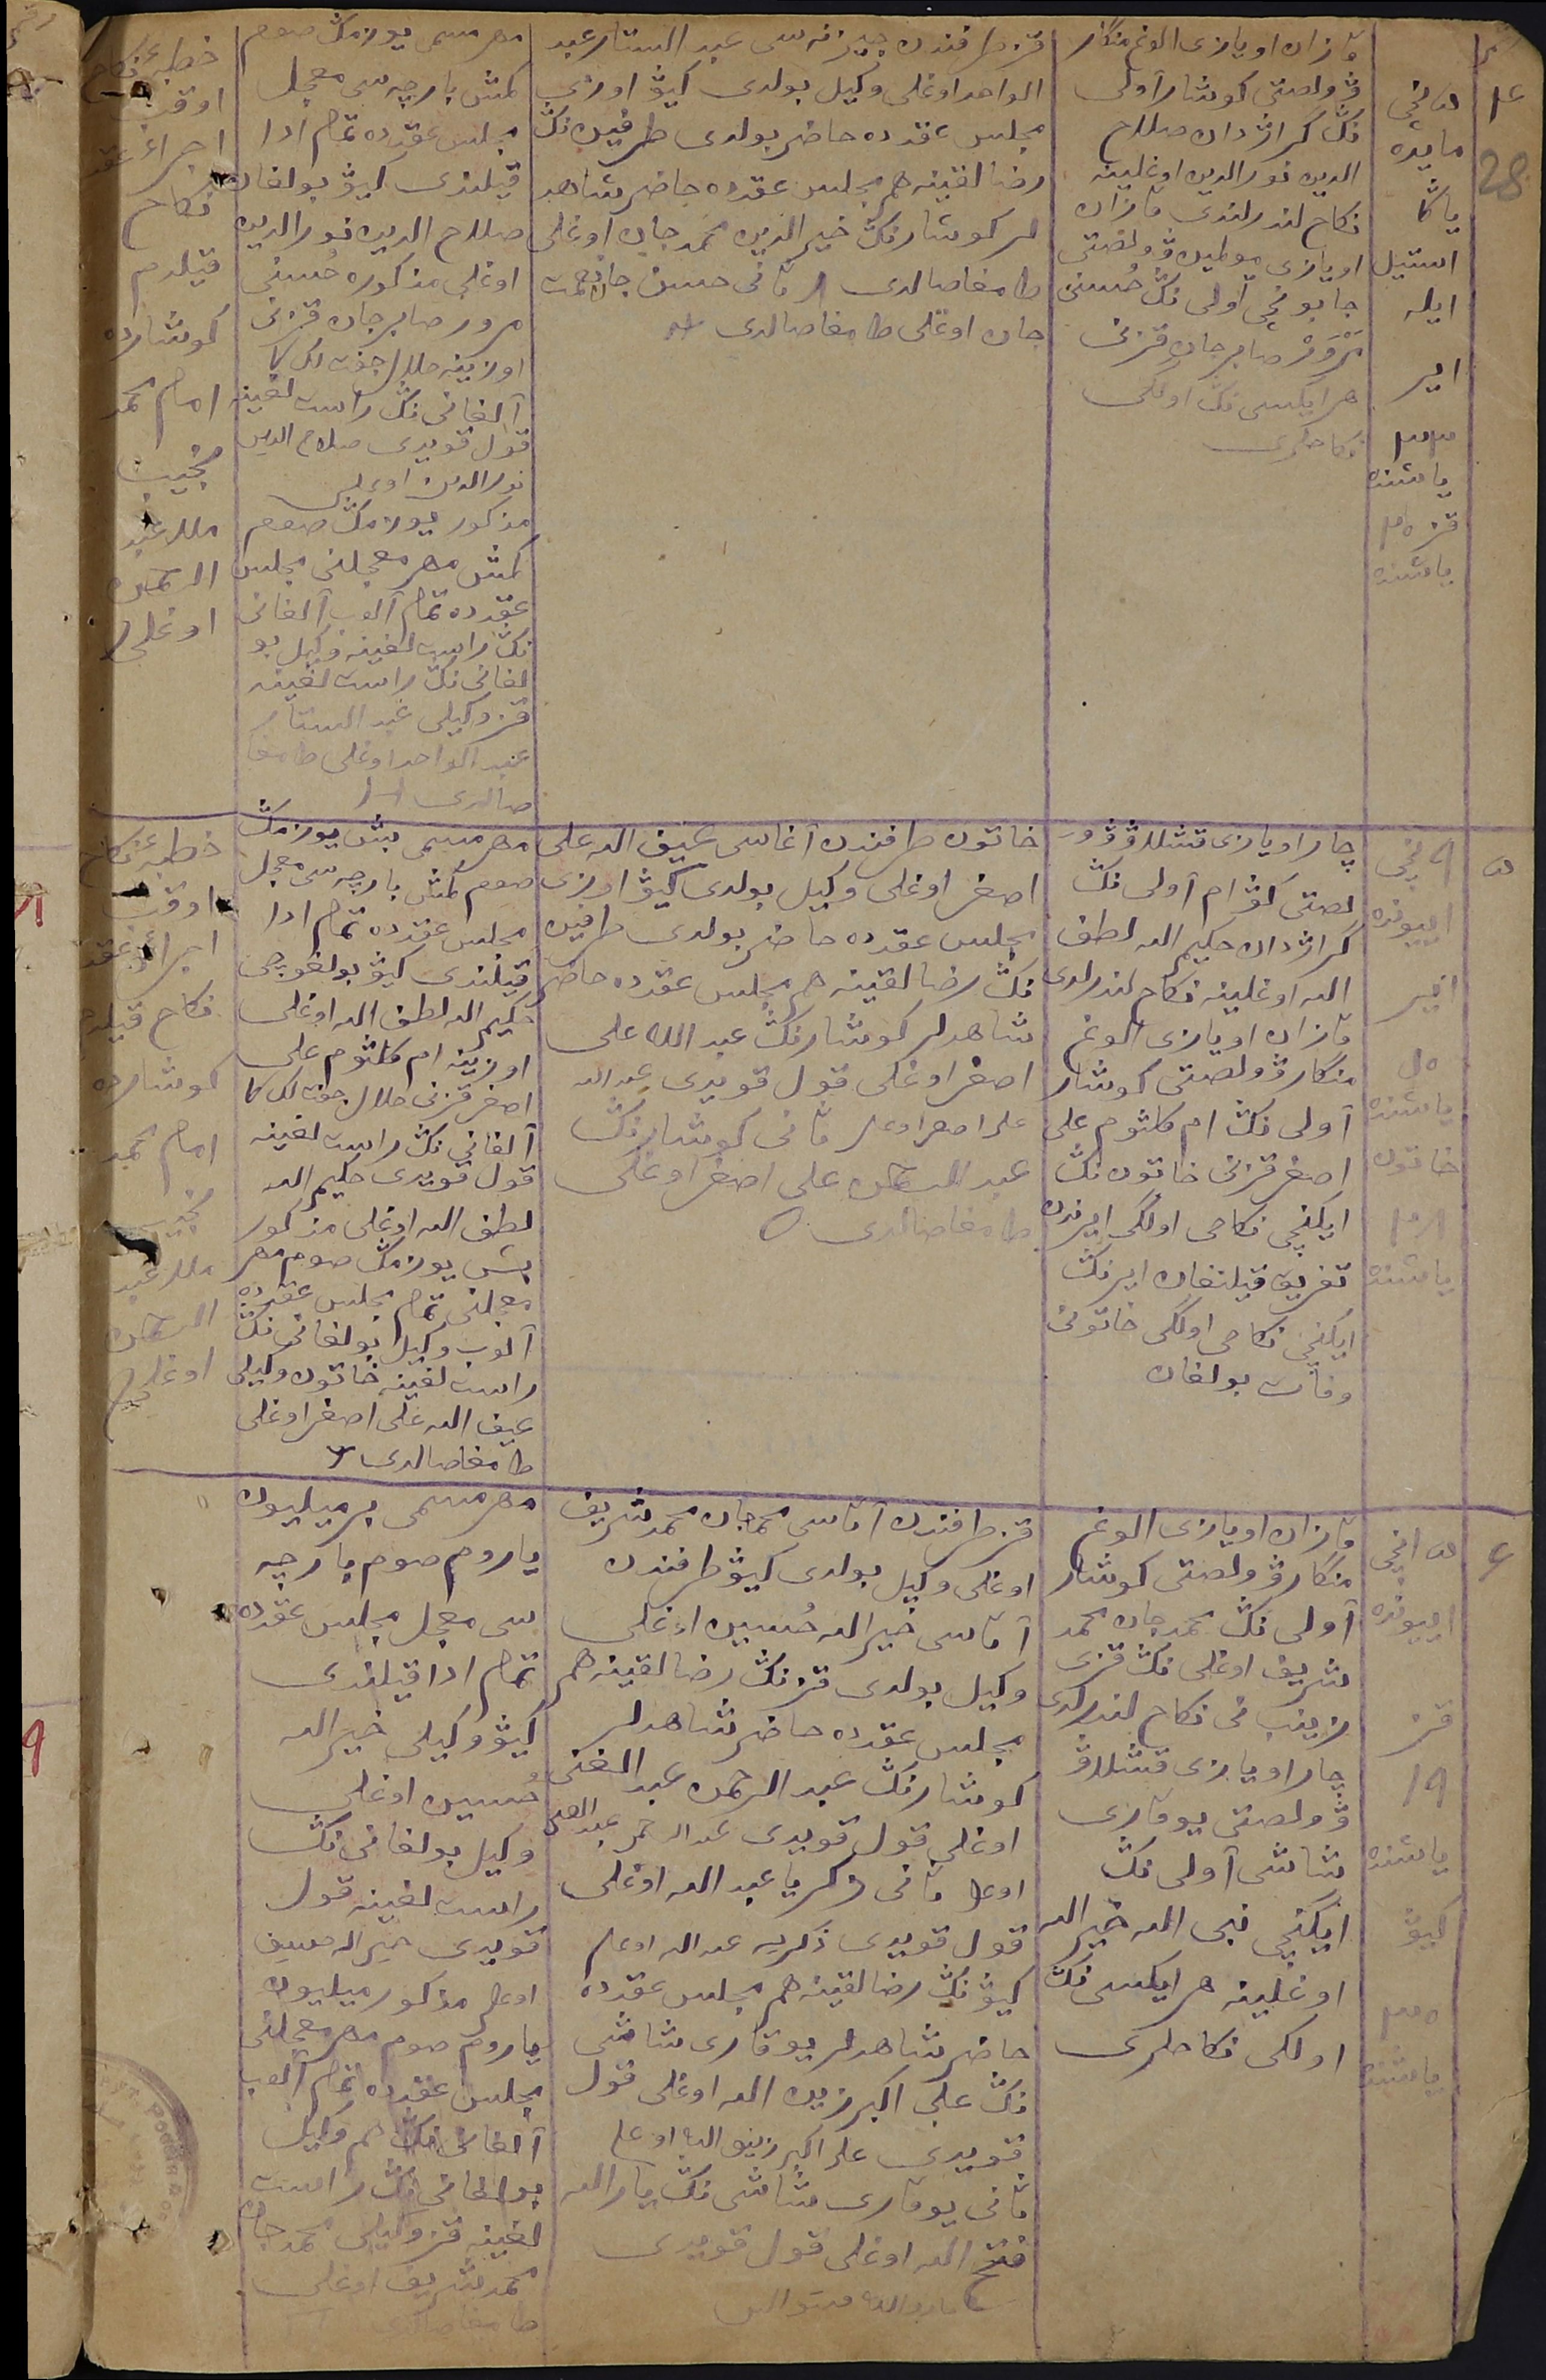 ۴
28
۵ نچی
مایده
یاڭا
استیل
ایله
ایر
۲۳
یاشنده
قز ۲۵
یاشنده
قازان اویازی الوغ منگار
ۋولصتی کوشار آولی
نڭ کراژدان صلاح
الدین نورالدین اوغلینه
نکاح لندرلدی قازان
اویازی مولمین ۋولصتی
جابونچی آولی نڭ حُسنی
مَرْوَرْ صابرجان قزنی
هر ایکسی نڭ اولکی
نکاحلری
قز طرفندن جیزنه سی عبد الستار عبد
الواحد اوغلی وکیل بولدی کیۋ اوزی
مجلس عقدده حاضر بولدی طرفین نڭ
رضالقینه هم مجلس عقدده حاضر شاهد
لر کوشارنڭ خیرالدین محمدجان اوغلی
طامغا صالدی ثانی حسن جان
جان اوغلی طامغا صالدی
مهر مسمی یوز مڭ صوم
کمش بارچه سی معجل
مجلس عقدده تمام ادا
قیلندی کیۋ بولغان
صلاح الدین نورالدین
اوغلی مذکوره حُسنی
مرور صابرجان قزنی
اوزینه حلال جفت لک کا
آلغانی نڭ راست لغینه
قول قویدی صلاح الدین
نورالدین اوغلی
مذکور یوز مڭ صوم
کمش مهر معجلنی مجلس
عقدده تمام آلوب آلغانی
نڭ راست لغینه وکیل بو
لغانی نڭ راست لغینه
قز وکیلی عبد الستار
عبد الواحد اوغلی طامغا
صالدی
خطبهٔ نکاح
اوقب
اجراء عقد
نکاح
قیلدم
کوشارده
امام محمد
نجیب
ملا عبد
الرحمن
اوغلی
۵
۹ نچی
ایيونده
ایر
۵۱
یاشنده
خاتون
یاشنده
چار اویازی قشلاۋ ۋو
لصتی کوۋام آولی نڭ
کراژدان حکیم الله لطف
الله اوغلینه نکاح لندرلدی
قازان اویازی الوغ
منکار ۋولصتی کوشار
آولی نڭ ام کلثوم علی
اصغر قزنی خاتون نڭ
ایکنچی نکاحی اولکی ایرندن
تفریق قیلنغان ایر نڭ
ایکنچی نکاحی اولکی خاتونی
وفات بولغان
خاتون طرفندن آغاسی عیف الله علی
اصغر اوغلی وکیل بولدی کیۋ اوزی
مجلس عقدده حاضر بولدی طرفین
نڭ رضالقینه هم مجلس عقدده حاضر
شاهدلر کوشارنڭ عبد الله علی
اصغر اوغلی قول قویدی عبدالله
علی اصغر اوغلی ثانی کوشارنڭ
عبد الرحمن علی اصغر اوغلی
طامغا صالدی
مهر مسمی بش یوز مڭ
صوم کمش بارچه سی معجل
مجلس عقدده تمام ادا
قیلندی کیۋ بولغوچی
حکیم الله لطف الله اوغلی
اوزینه ام کلثوم علی
اصغر قزنی حلال جفت لک کا
آلغانی نڭ راست لغینه
قول قویدی حکیم الله
لطف الله اوغلی مذکور
بش یوز مڭ صوم مهر
معجلنی تمام مجلس عقدده
آلوب وکیل بولغانی نڭ
راست لغینه خاتون وکیلی
عیف الله علی اصغر اوغلی
طامغا صالدی
خطبهٔ نکاح
اوقب
اجراء عقد
نکاح قیلدم
کوشارده
امام محمد
نجیب
ملا عبد
الرحمن
اوغلی
۶
۱۵ نچی
ایيونده
قز
۱۹
یاشنده
کیۋ
یاشنده
قازان اویازی الوغ
منکار ۋولصتی کوشار
آولی نڭ محمدجان محمد
شریف اوغلی نڭ قزی
زینب نی نکاح لندرلدی
چار اویازی قشلاۋ
ۋولصتی یوقاری
شاشی آولی نڭ
ایکنچی نبی الله خیرالله
اوغلینه هر ایکسی نڭ
اولکی نکاحلری
قز طرفندن آتاسی محمدجان محمد شریف
اوغلی وکیل بولدی کیۋ طرفندن
آتاسی خیرالله حُسین اوغلی
وکیل بولدی قز نڭ رضالقینه هم
مجلس عقدده حاضر شاهدلر
کوشارنڭ عبد الرحمن عبد الغنی
اوغلی قول قویدی عبدالرحمن عبدالغنی
اوغلی ثانی زکریا عبد الله اوغلی
قول قویدی ذکریه عبدالله اوغلی
کیۋ نڭ رضالقینه هم مجلس عقدده
حاضر شاهدلر یوقاری شاشی
نڭ علی اکبر زین الله اوغلی قول
قویدی علی اکبر زینو الله اوغلی
ثانی یوقاری شاشی نڭ یارالله
فتح الله اوغلی قول قویدی
مهر مسمی بر میلیون
یاروم صوم بارچه
سی معجل مجلس عقدده
تمام ادا قیلندی
کیۋ وکیلی خیرالله
حُسین اوغلی
وکیل بولغانی نڭ
راست لغینه قول
قویدی خیرالله حسین
اوغلی مذکور میلیون
یاروم صوم مهر معجلنی
مجلس عقدده تمام آلوب
آلغانی نڭ هم وکیل
بولغانی نڭ راست
لغینه قز وکیلی محمدجان
محمد شریف اوغلی
طامغا صالدی